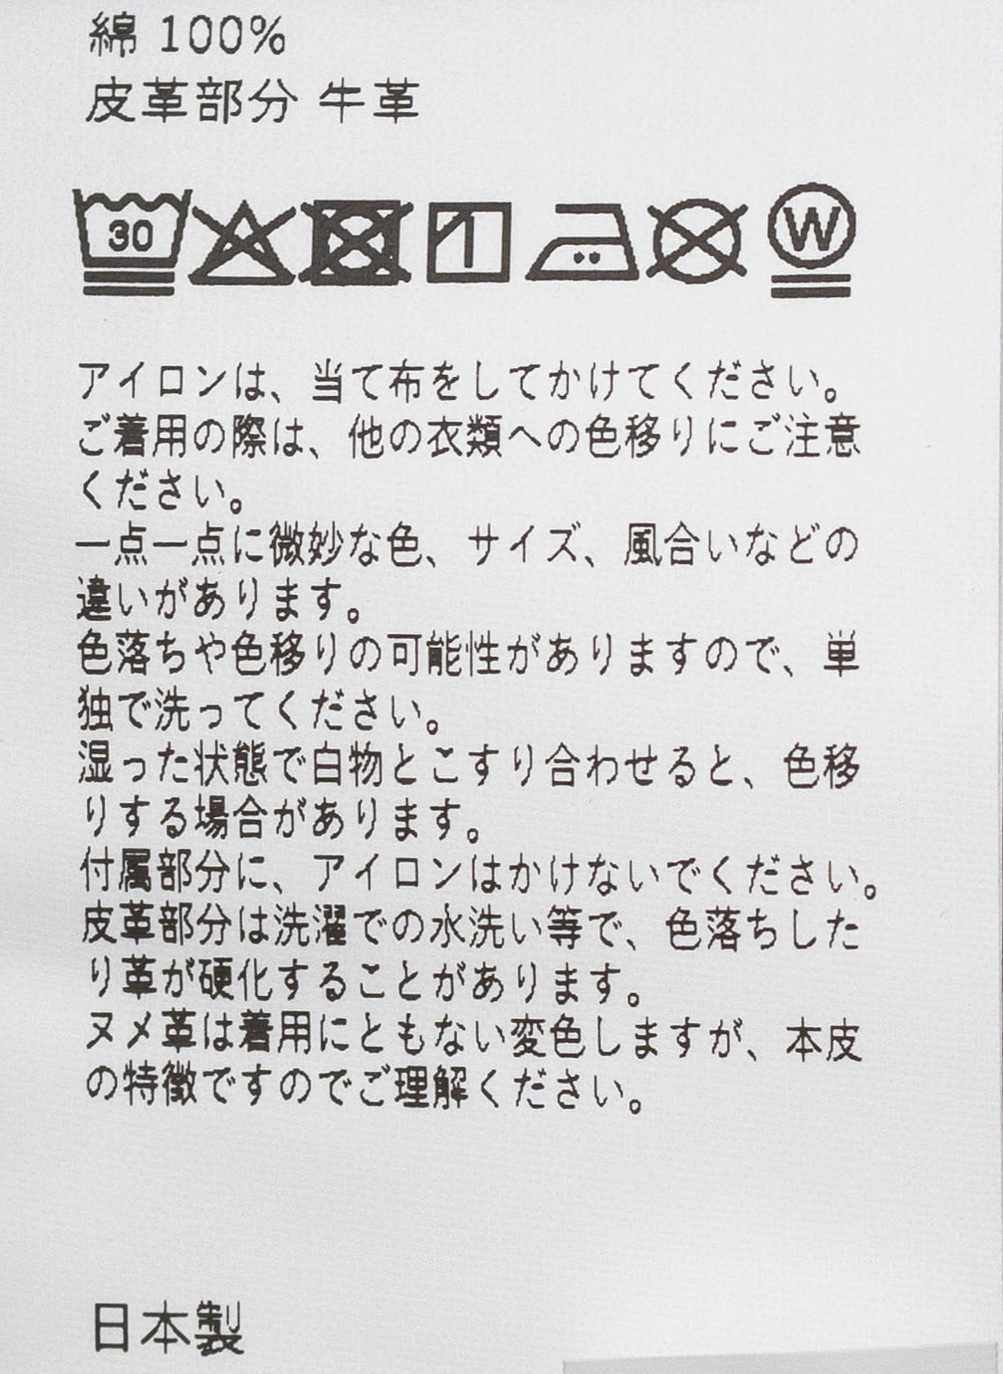 綿 100%
皮革部分 牛革
30
W
アイロンは、当て布をしてかけてください。
ご着用の際は、他の衣類への色移りにご注意
ください。
一点一点に微妙な色、サイズ、風合いなどの
違いがあります。
色落ちや色移りの可能性がありますので、単
独で洗ってください。
湿った状態で白物とこすり合わせると、色移
りする場合があります。
付属部分に、アイロンはかけないでください。
皮革部分は洗濯での水洗い等で、色落ちした
り革が硬化することがあります。
ヌメ革は着用にともない変色しますが、本皮
の特徴ですのでご理解ください。
日本製